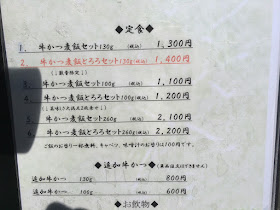 ◆定食◆
1. 牛かつ麦飯セット130g (税込) 1,300円
2. 牛かつ麦飯とろろセット130g(税込) 1,400円
(↓数量限定↓)
3. 牛かつ麦飯セット100g (税込) 1,100円
4. 牛かつ麦飯とろろセット100g(税込) 1,200円
5. 牛かつ麦飯セット260g (税込) 2,100円
6. 牛かつ麦飯とろろセット260g(税込) 2,200円
ご飯のお替り一杯無料、キャベツ、味噌汁のお替りは100円です。
◆追加牛かつ◆
追加牛かつ 130g (税込) 800円
追加牛かつ 100g (税込) 600円
◆お飲物◆